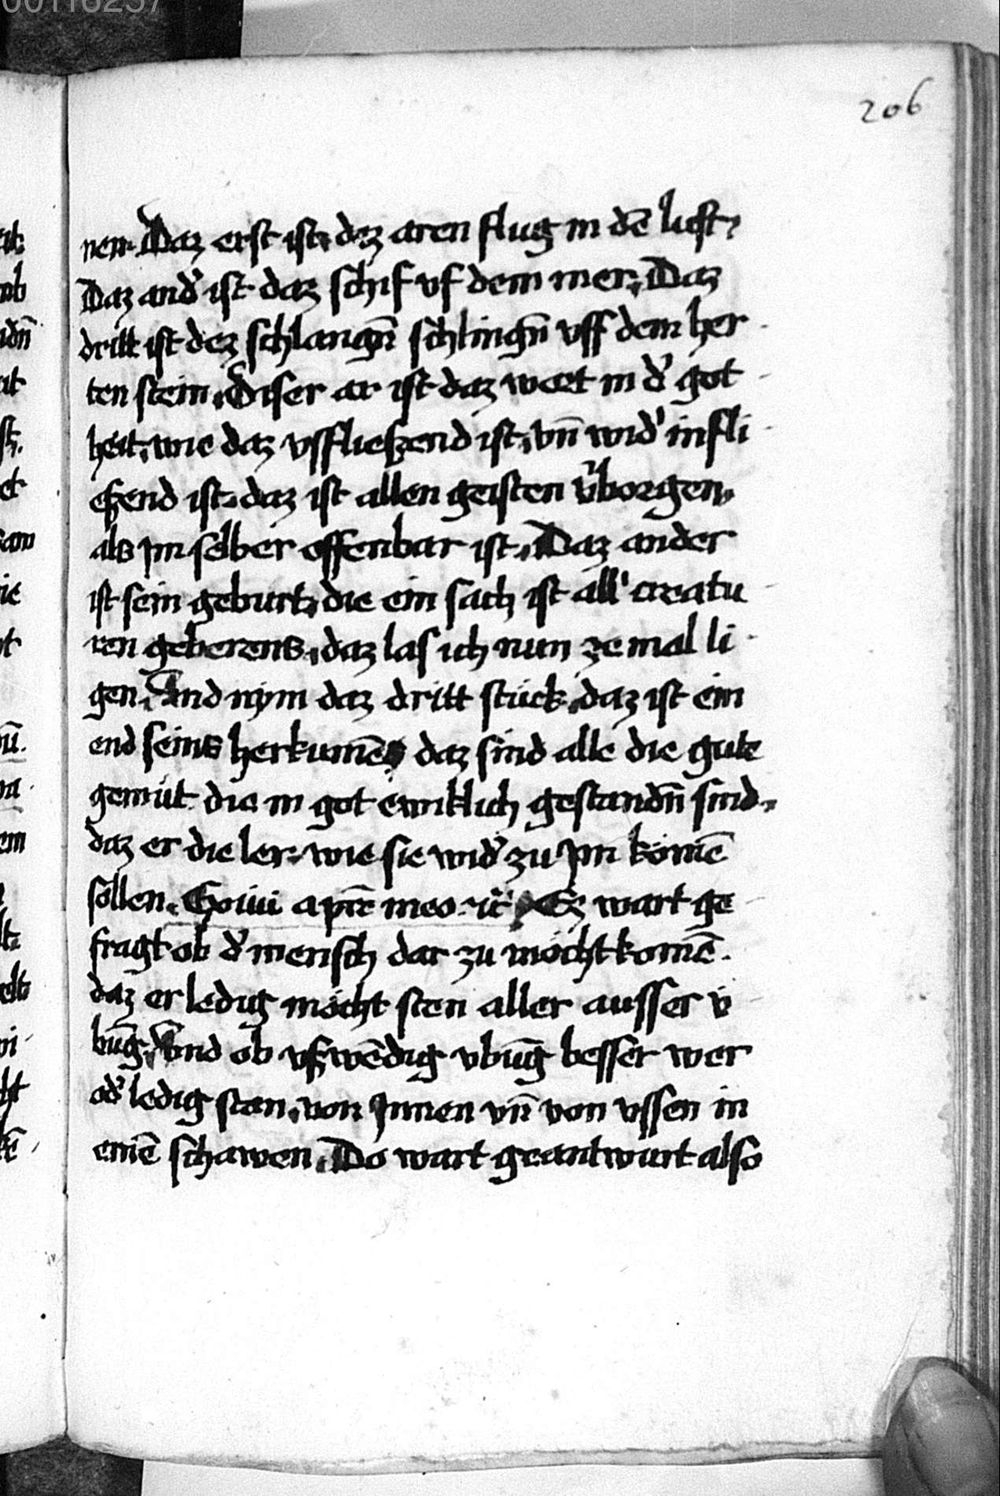 00116257
206
nen. Daz erst ist, dez aren flug in dē luft,
Daz and̛ ist daz schif vf dem mer, Daz
dritt ist dez schlangn̄ schlingn̄ vff dem her
ten stein, Diser ar ist daz wort in d̛ got
heit, wie daz vsfflieszend ist, vn̄ wid̛ infli
eszend ist. daz ist allen geisten v̛borgen,
als im selber offenbar ist, Daz ander
ist sein geburt, die ein sach ist all̛ creatu
ren geberens, daz las ich nun ze mal li
gen, Vnd nÿm daz dritt stück, daz ist ein
end seins herkumēs daz sind alle die gute
gemüt die in got ewiklich gestandn̄ sind,
daz er die ler. wie sie wid̛ zu Im komē
söllen. Exiui a pr̄e meo. ꝛc̄ Ez wart ge
fragt ob d̛ mensch dar zu möcht komē.
daz er ledig möcht sten aller ausser ü
būg, Vnd ob vszwēdig vbūg besser wer
od̛ ledig stan, von Innen vn̄ von vssen in
einē schawen, Do wart geantwurt also